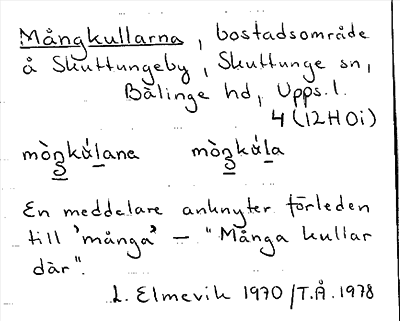 Mångkullarna, bostadsområde
å Skuttungeby, Skuttunge sn,
Bälinge hd, Upps. l.
4 (12H 0i)
mòŋkάlana mòŋkάla
En meddelare anknyter förleden
till 'många' — "Många kullar
där".
L. Elmevik 1970 / T.Å. 1978